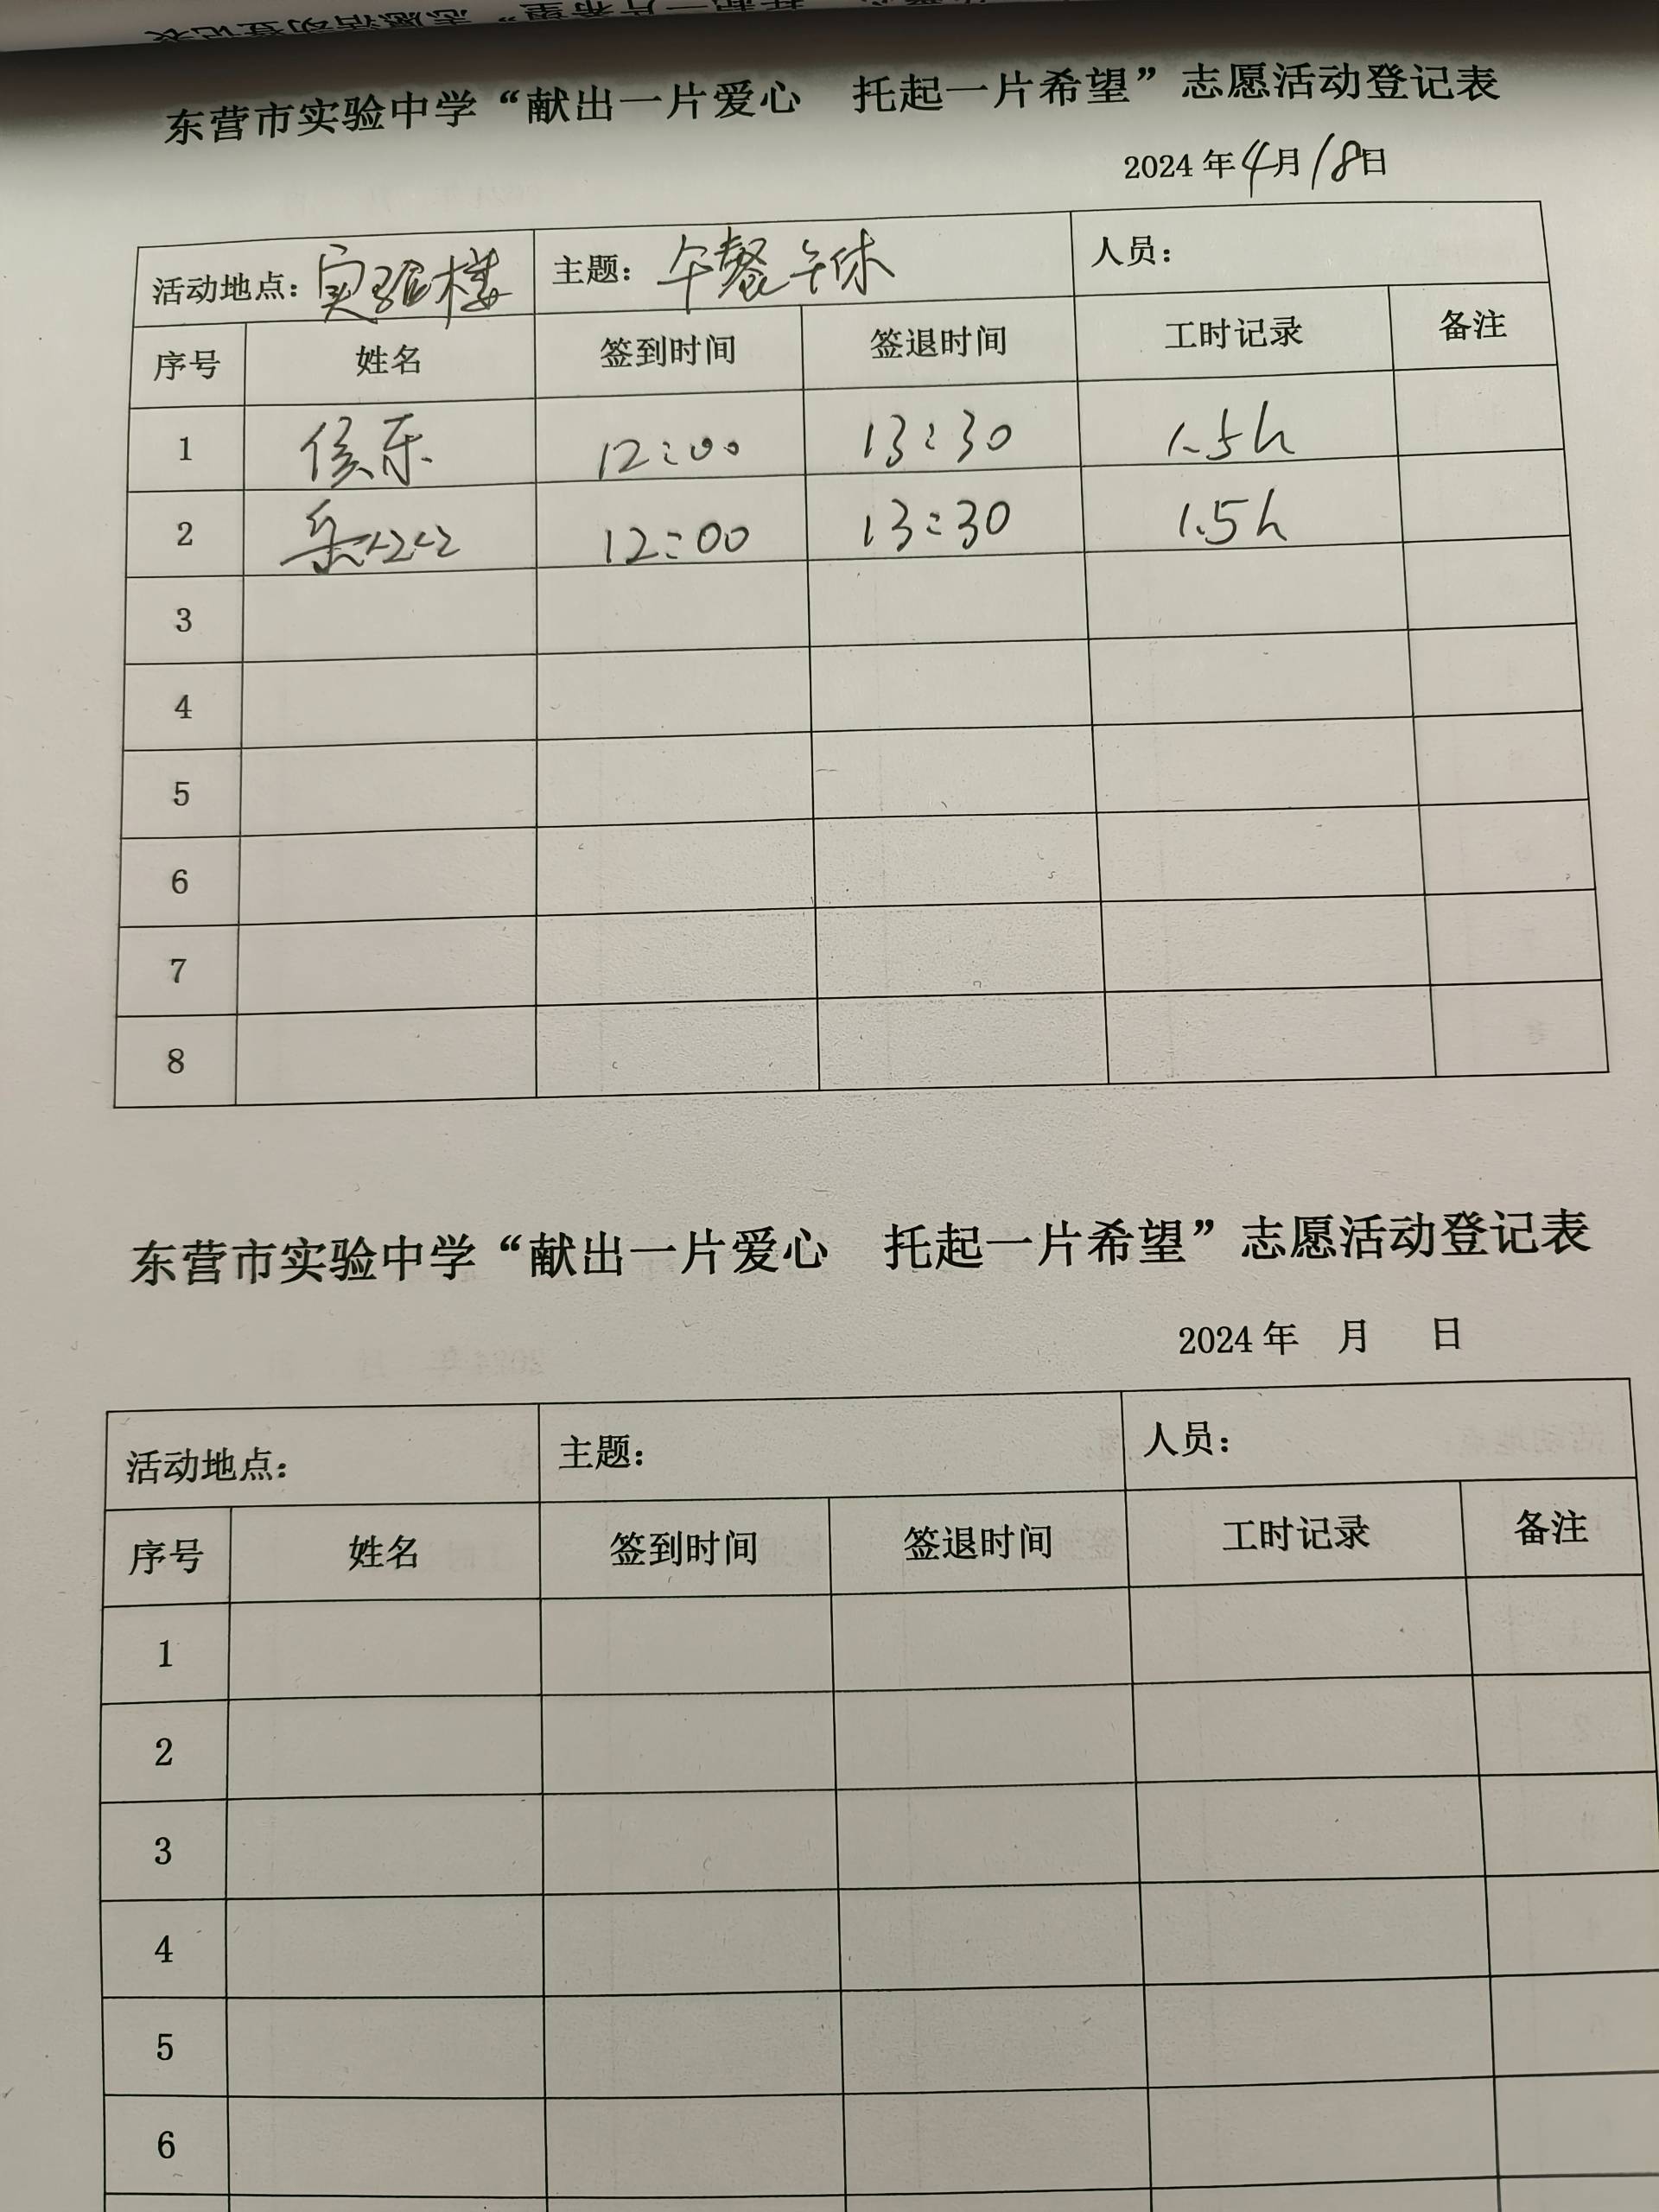 东营市实验中学“献出一片爱心 托起一片希望”志愿活动登记表
2024年4月18日
活动地点：实验楼 主题：午餐午休 人员：
序号 姓名 签到时间 签退时间 工时记录 备注
1 侯乐 12:00 13:30 1.5h
2 12:00 13:30 1.5h
3
4
5
6
7
8
东营市实验中学“献出一片爱心 托起一片希望”志愿活动登记表
2024年 月 日
活动地点： 主题： 人员：
序号 姓名 签到时间 签退时间 工时记录 备注
1
2
3
4
5
6